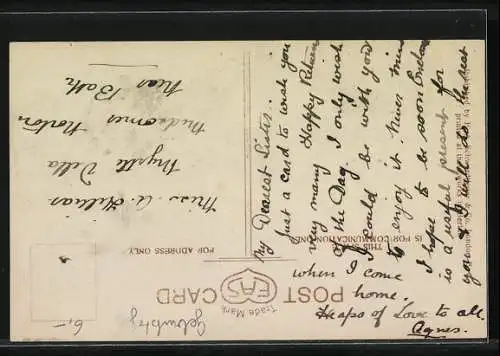 POST CARD
EAS
Trade Mark
THIS SPACE
IS FOR COMMUNICATION ONLY
FOR ADDRESS ONLY
My Dearest Sister.
Just a card to wish you
very many Happy Returns
of the Day. I only wish
I could be with you
to enjoy it. Never mind
I hope to be soon. Enclosed
is a useful present for
you & I will do the rest
when I come
home.
Heaps of Love to all.
Agnes.
Miss A.
Myrtle Villa
Midsomer Norton
Near Bath
Geburtstag
6,-